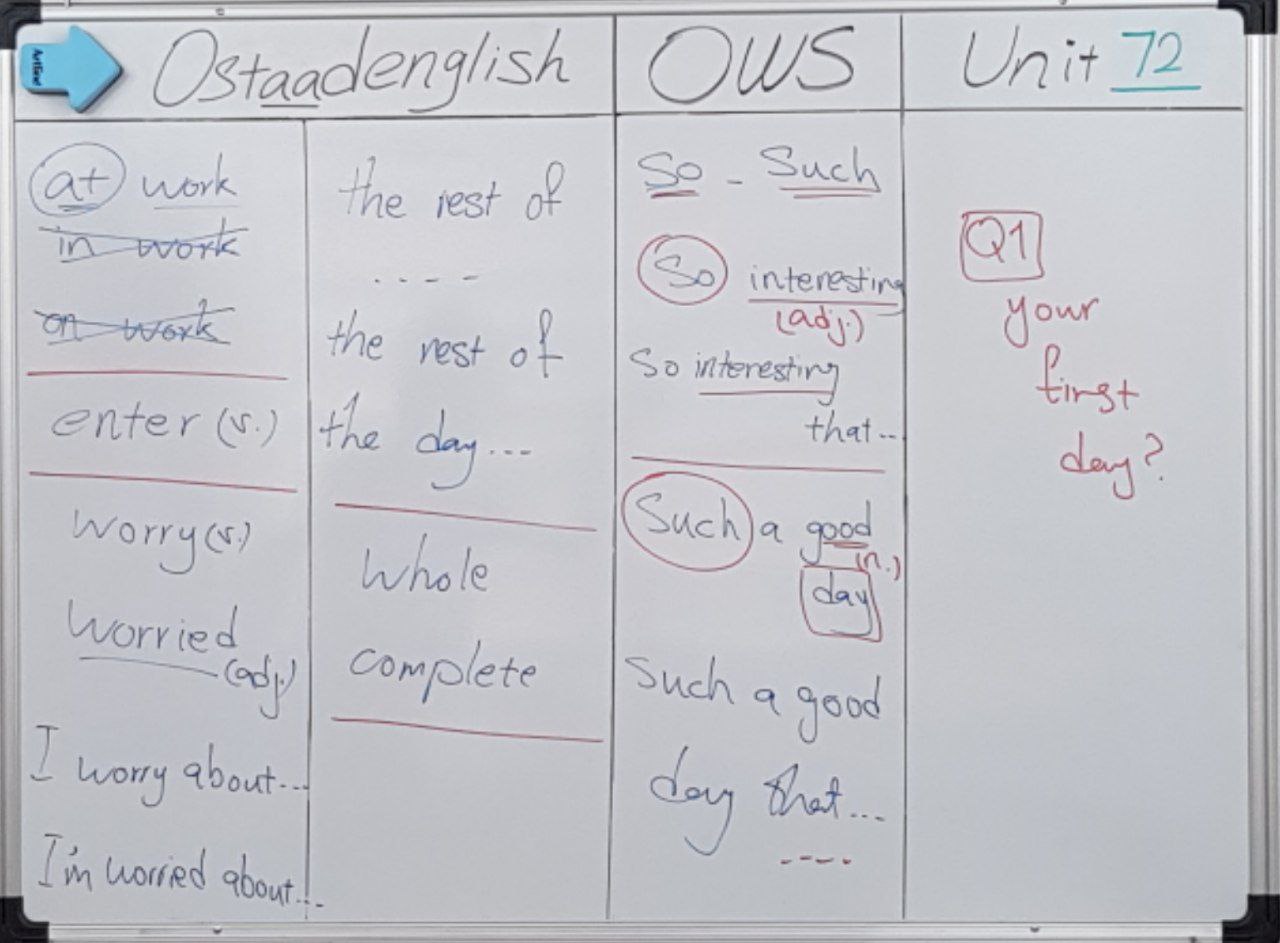 Ostaadenglish
OWS
Unit 72
at work
in work
on work
enter (v.)
worry (v.)
worried
(adj.)
I worry about...
I'm worried about...
the rest of
....
the rest of
the day...
whole
complete
So - Such
So interesting
(adj.)
So interesting
that...
Such a good
(n.)
day
Such a good
day that...
....
Q1
your
first
day?